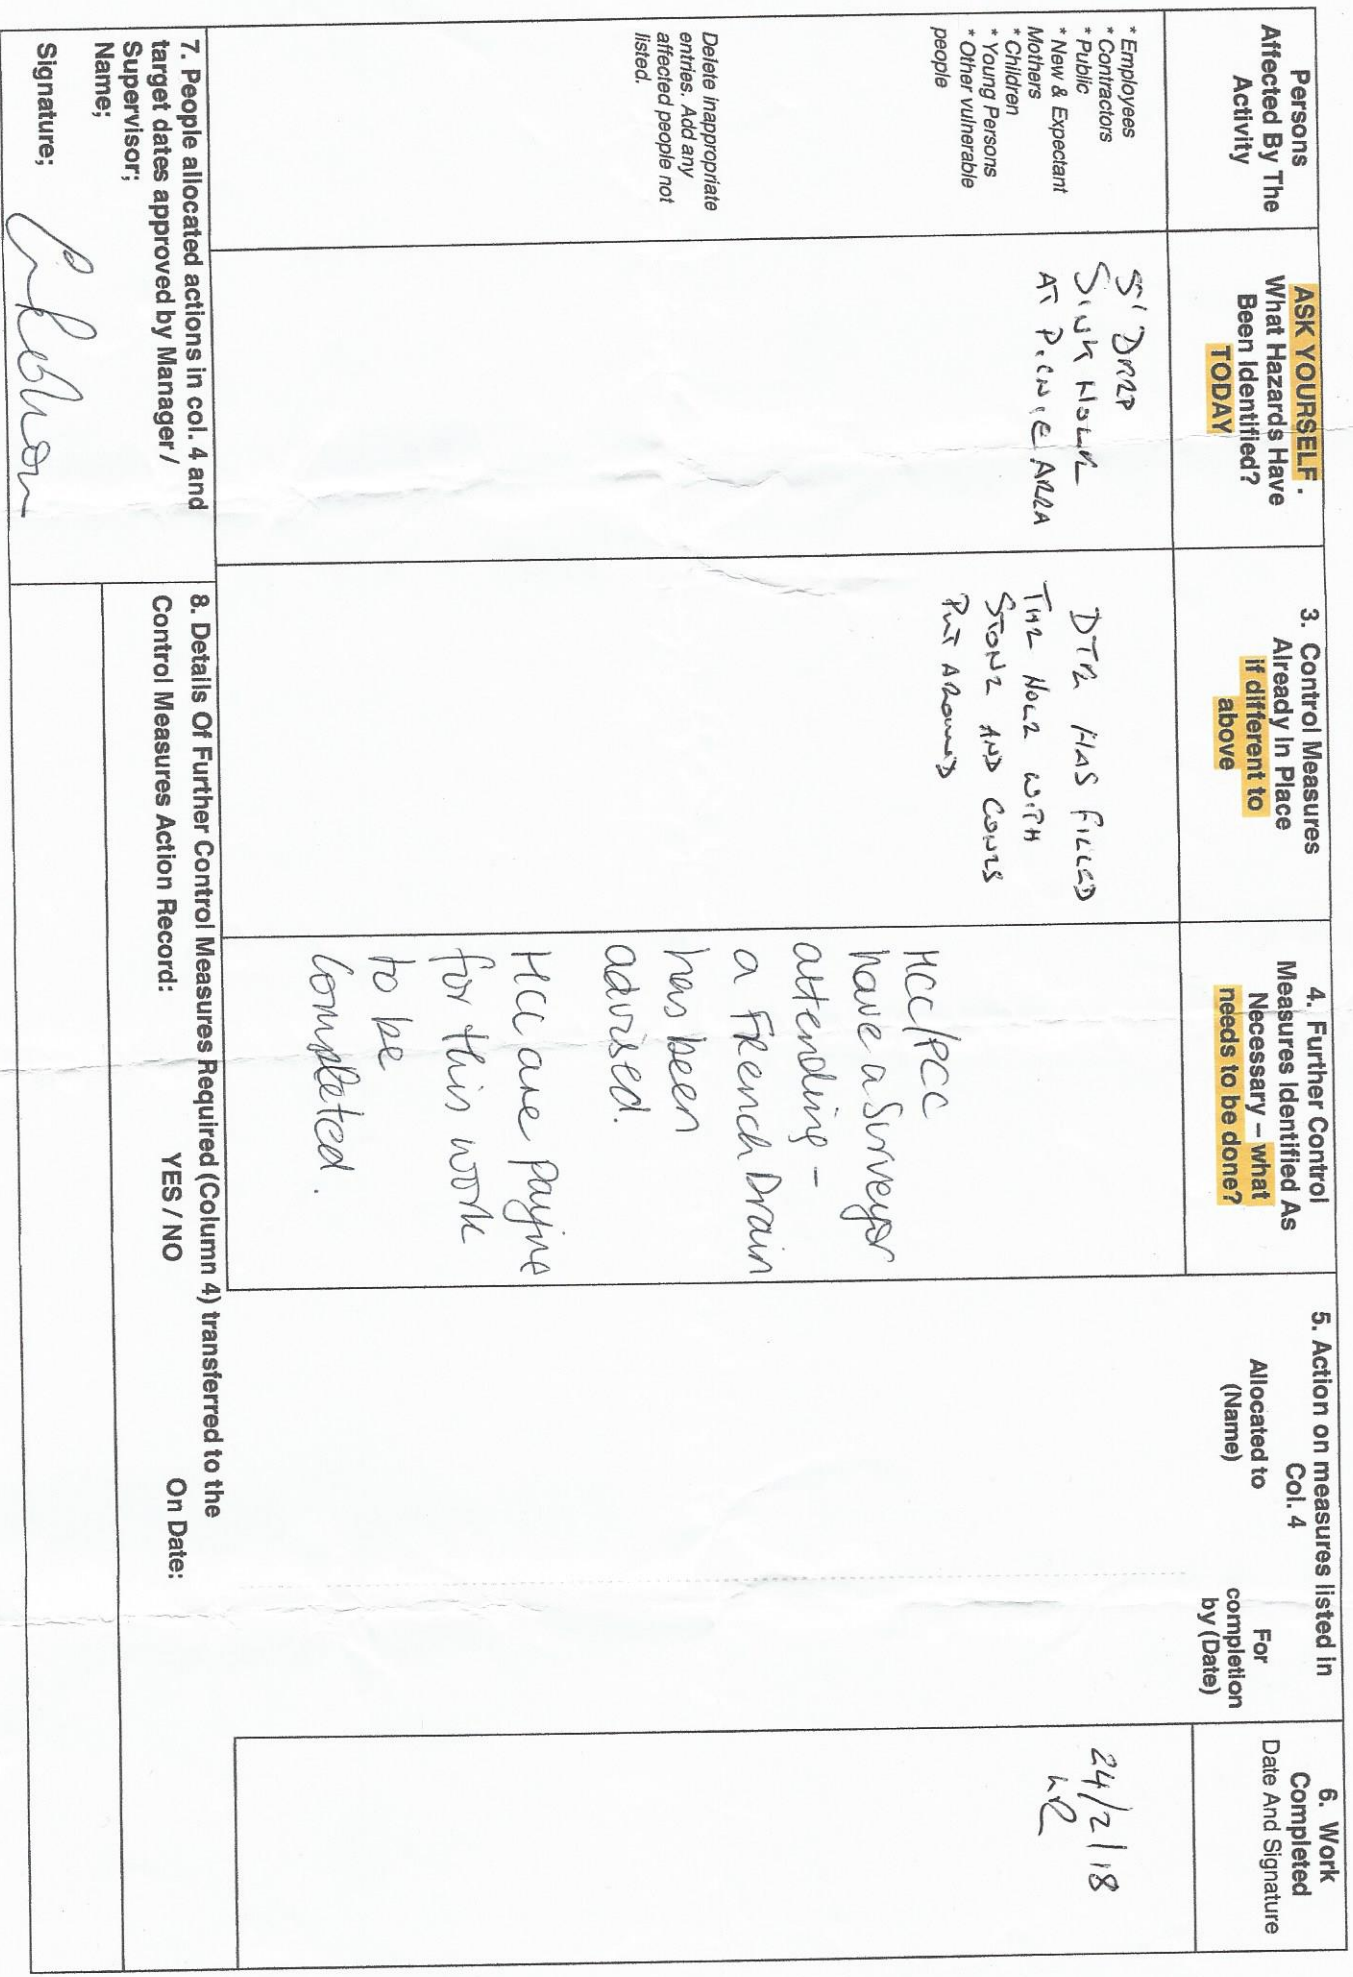 Persons
Affected By The
Activity
ASK YOURSELF -
What Hazards Have
Been Identified?
TODAY
3. Control Measures
Already In Place
if different to
above
4. Further Control
Measures Identified As
Necessary – what
needs to be done?
5. Action on measures listed in
Col. 4
Allocated to
(Name)
For
completion
by (Date)
6. Work
Completed
Date And Signature
* Employees
* Contractors
* Public
* New & Expectant
Mothers
* Children
* Young Persons
* Other vulnerable
people
Delete inappropriate
entries. Add any
affected people not
listed.
5' DEEP
SINK HOLE
AT PICNIC AREA
DTE HAS FILLED
THE HOLE WITH
STONE AND CONES
PUT AROUND
HCC/PCC
have a Surveyor
attending -
a French Drain
has been
advised.
HCC are paying
for this work
to be
completed.
24/2/18
7. People allocated actions in col. 4 and
target dates approved by Manager /
Supervisor;
Name;
Signature;
8. Details Of Further Control Measures Required (Column 4) transferred to the
Control Measures Action Record: YES / NO On Date: